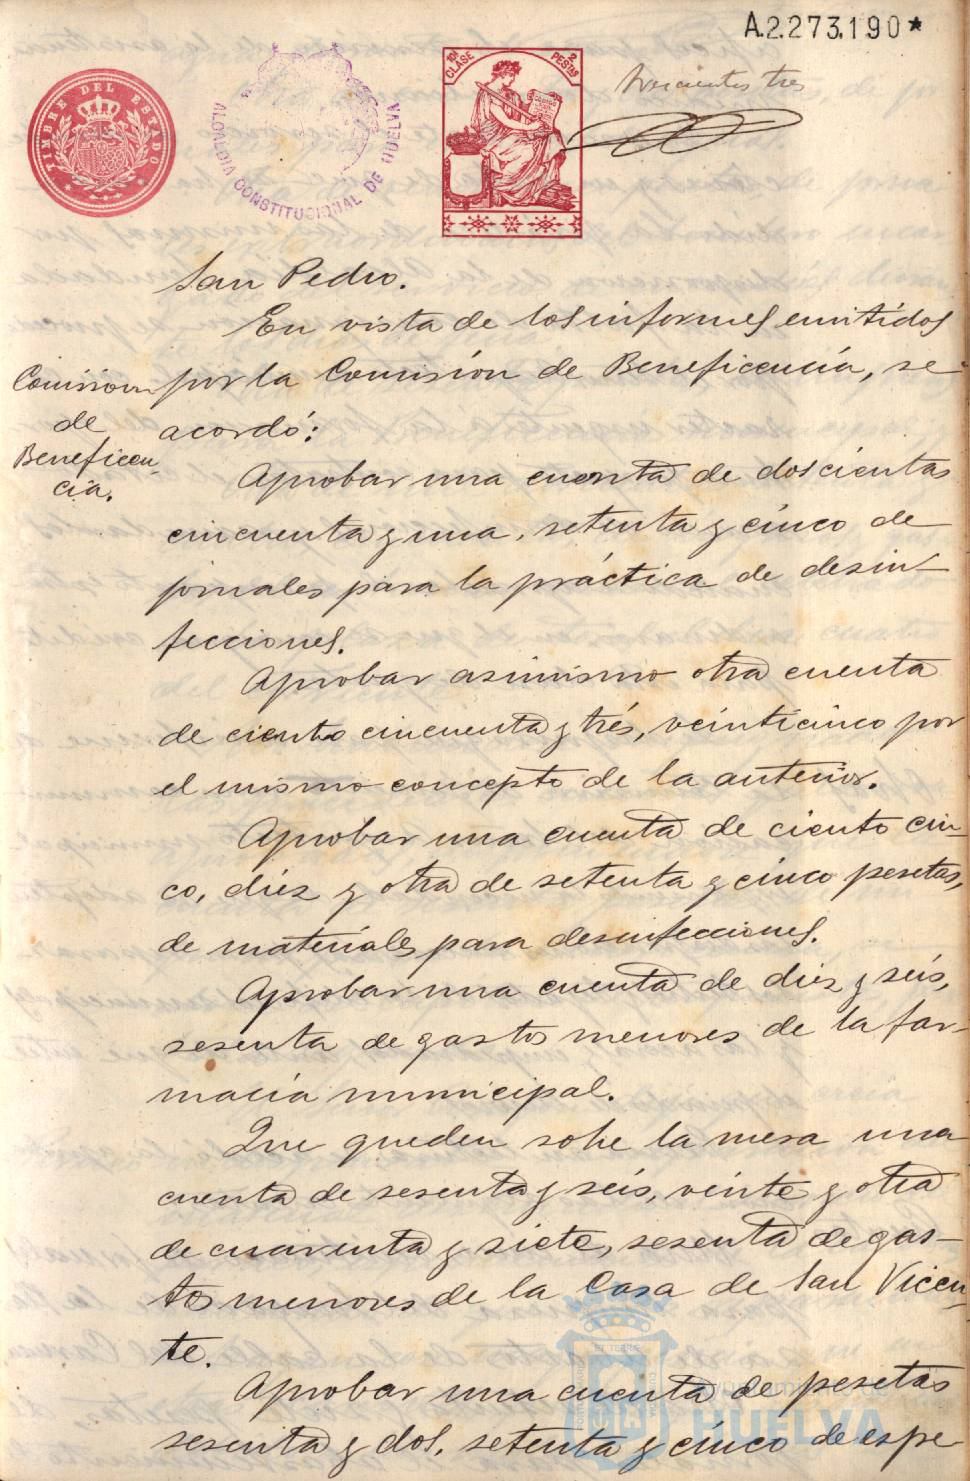 A.2.273.190*
TIMBRE DEL ESTADO
ALCALDIA CONSTITUCIONAL DE HUELVA
10ª CLASE
2 PESTAS
trescientos tres
San Pedro.
En vista de los informes emitidos
por la Comisión de Beneficencia, se
acordó:
Comision
de
Beneficen-
cia.
Aprobar una cuenta de doscientas
cincuenta y una, setenta y cinco de
jornales para la práctica de desin-
fecciones.
Aprobar asimismo otra cuenta
de ciento cincuenta y trés, veinticinco por
el mismo concepto de la anterior.
Aprobar una cuenta de ciento cin-
co, diez y otra de setenta y cinco pesetas,
de materiales para desinfecciones.
Aprobar una cuenta de diez y seis,
sesenta de gastos menores de la far-
macia municipal.
Que queden sobre la mesa una
cuenta de sesenta y seis, veinte y otra
de cuarenta y siete, sesenta de gas-
tos menores de la Casa de San Vicen-
te.
Aprobar una cuenta de pesetas
sesenta y dos, setenta y cinco de espe
Ayuntamiento de
HUELVA